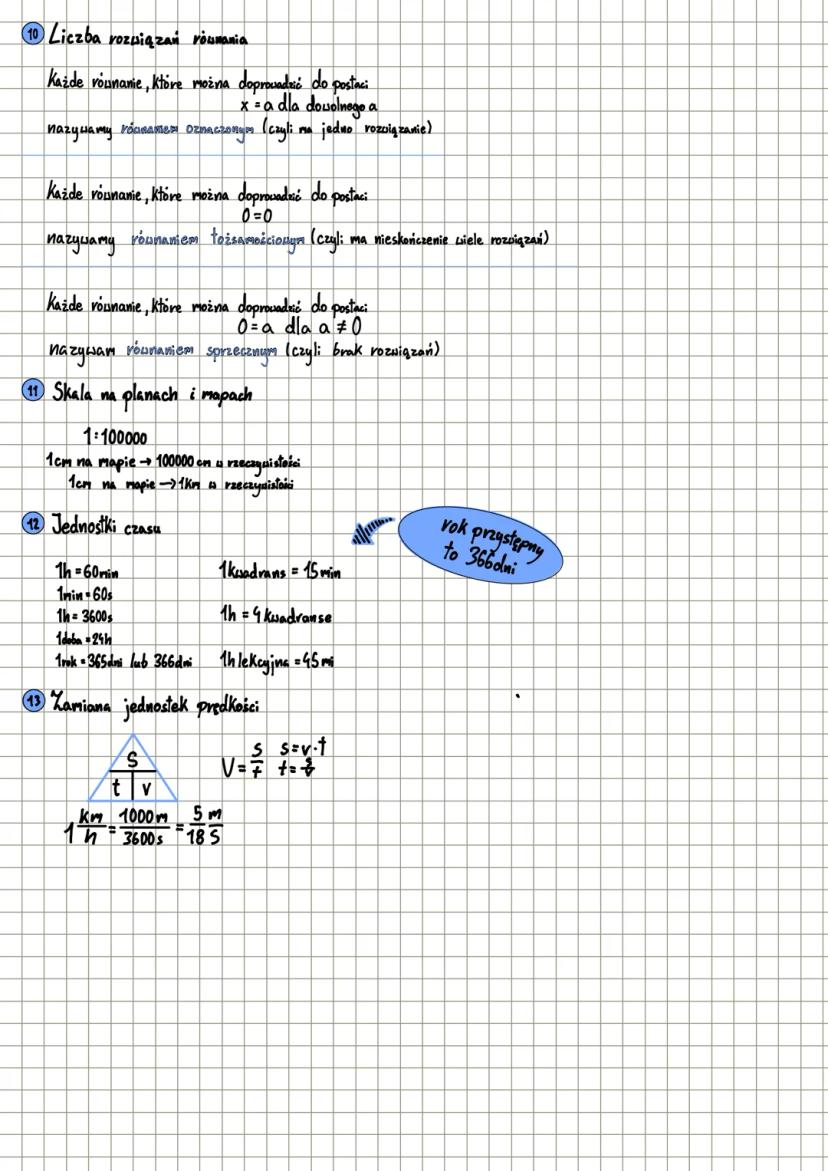 10 Liczba rozwiązań równania
Każde równanie, które można doprowadzić do postaci
x = a dla dowolnego a
nazywamy równaniem oznaczonym (czyli ma jedno rozwiązanie)
Każde równanie, które można doprowadzić do postaci
0=0
nazywamy równaniem tożsamościowym (czyli ma nieskończenie wiele rozwiązań)
Każde równanie, które można doprowadzić do postaci
0=a dla a ≠ 0
nazywam równaniem sprzecznym (czyli brak rozwiązań)
11 Skala na planach i mapach
1:100000
1cm na mapie → 100000 cm w rzeczywistości
1cm na mapie → 1km w rzeczywistości
12 Jednostki czasu
rok przystępny
to 366dni
1h = 60min 1kwadrans = 15min
1min = 60s
1h = 3600s 1h = 4 kwadranse
1doba = 24h
1rok = 365dni lub 366dni 1h lekcyjna = 45mi
13 Zamiana jednostek prędkości
S
t v
V = s/t s = v·t
t = s/v
1 km/h = 1000m/3600s = 5/18 m/s